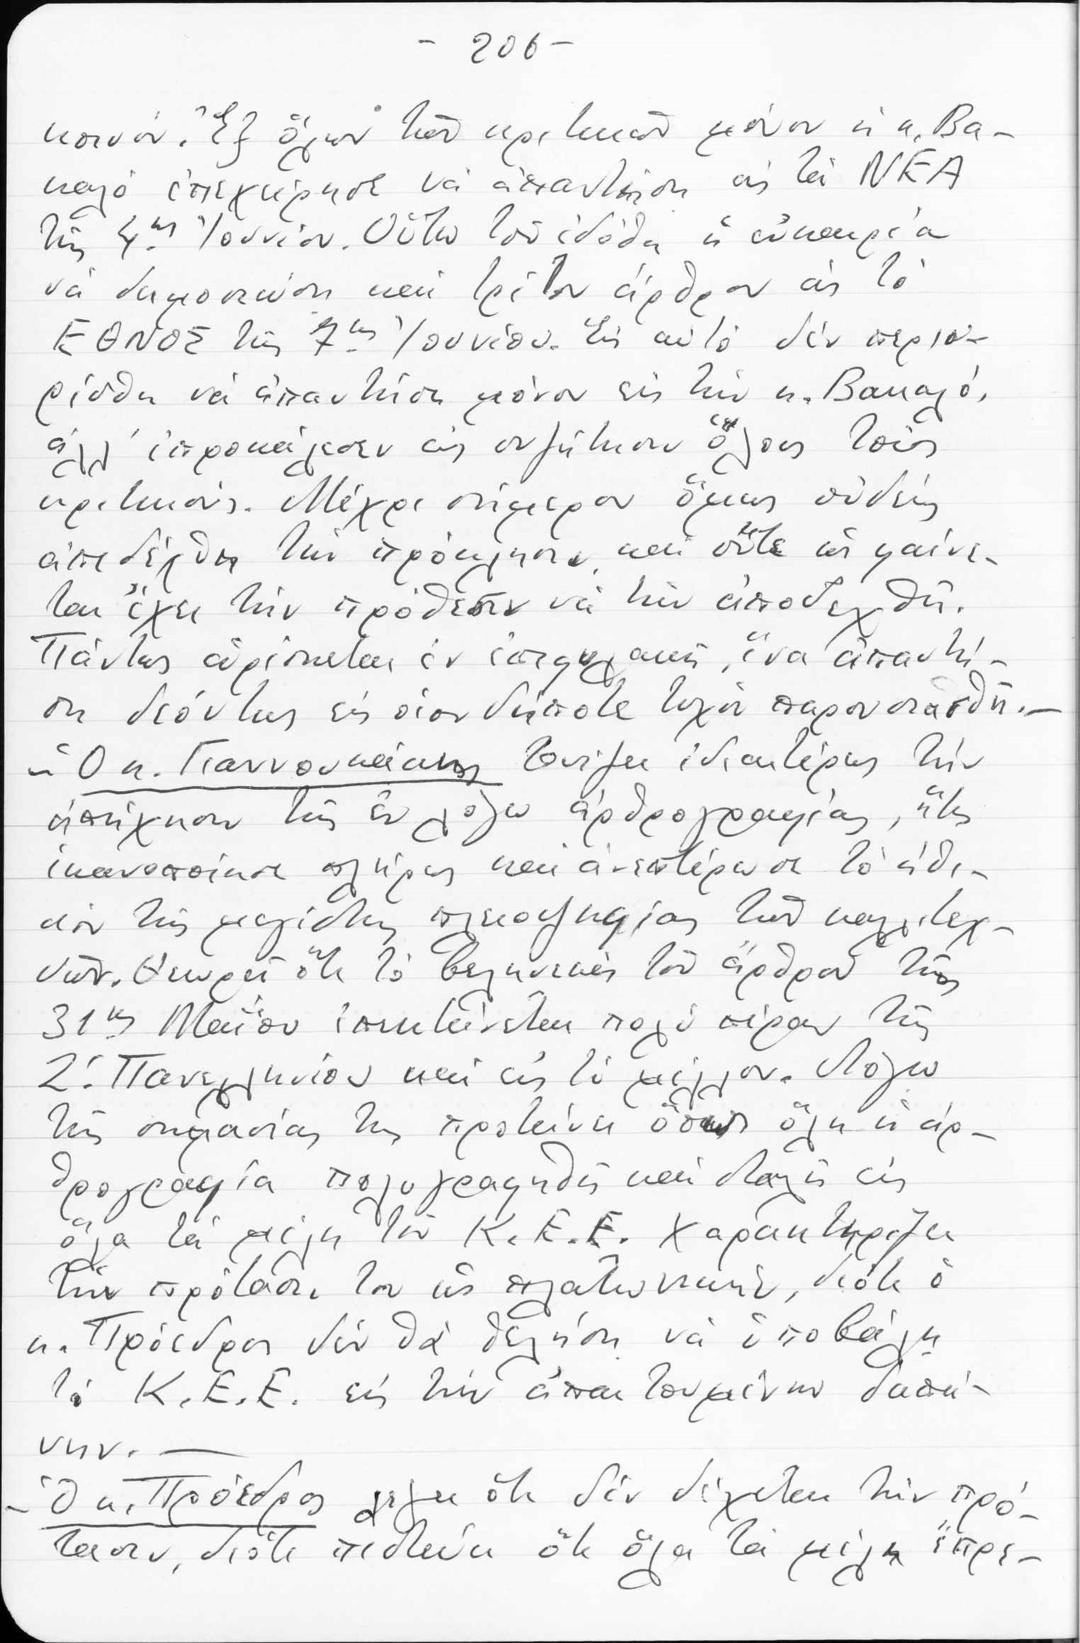 - 206 -
κοινόν. Ἐξ ὅλων τῶν κριτικῶν μόνον ἡ κ. Βα-
καλό ἐπεχείρησε νά ἀπαντήση εἰς τά ΝΕΑ
τῆς 4ης Ἰουνίου. Οὕτω τοῦ ἐδόθη ἡ εὐκαιρία
νά δημοσιεύση καί τρίτον ἄρθρον εἰς τό
ΕΘΝΟΣ τῆς 7ης Ἰουνίου. Εἰς αὐτό δέν περιω-
ρίσθη νά ἀπαντήση μόνον εἰς τήν κ. Βακαλό,
ἀλλ' ἐπροκάλεσεν εἰς συζήτησιν ὅλους τούς
κριτικούς. Μέχρι σήμερον ὅμως οὐδείς
ἀπεδέχθη τήν πρόκλησιν, καί οὔτε ὡς φαίνε-
ται ἔχει τήν πρόθεσιν νά τήν ἀποδεχθῆ.
Πάντως εὑρίσκεται ἐν ἐπιφυλακῆ, ἵνα ἀπαντή-
ση δεόντως εἰς οἱονδήποτε τυχόν παρουσιασθῆ.-
- Ὁ κ. Γιαννουκάκης τονίζει ἰδιαιτέρως τήν
ἀπήχησιν τῆς ἐν λόγω ἀρθρογραφίας, ἥτις
ἱκανοποίησε πλήρως καί ἀνεπτέρωσε τό ἠθι-
κόν τῆς μεγίστης πλειοψηφίας τῶν καλλιτεχ-
νῶν. Θεωρεῖ ὅτι τό βεληνεκές τοῦ ἄρθρου τῆς
31ης Μαΐου ἐπεκτείνεται πολύ πέραν τῆς
Ζ΄. Πανελληνίου καί εἰς τό μέλλον. Λόγω
τῆς σημασίας της προτείνει ὅπως ὅλη ἡ ἀρ-
θρογραφία πολυγραφηθῆ καί σταλῆ εἰς
ὅλα τά μέλη τοῦ Κ.Ε.Ε. Χαρακτηρίζει
τήν πρότασιν του ὡς πλατωνικήν, διότι ὁ
κ. Πρόεδρος δέν θά θελήση νά ὑποβάλη
τό Κ.Ε.Ε. εἰς τήν ἀπαιτουμένην δαπά-
νην. —
- Ὁ κ. Πρόεδρος λέγει ὅτι δέν δέχεται τήν πρό-
τασιν, διότι πιστεύει ὅτι ὅλα τά μέλη ἔπρε-